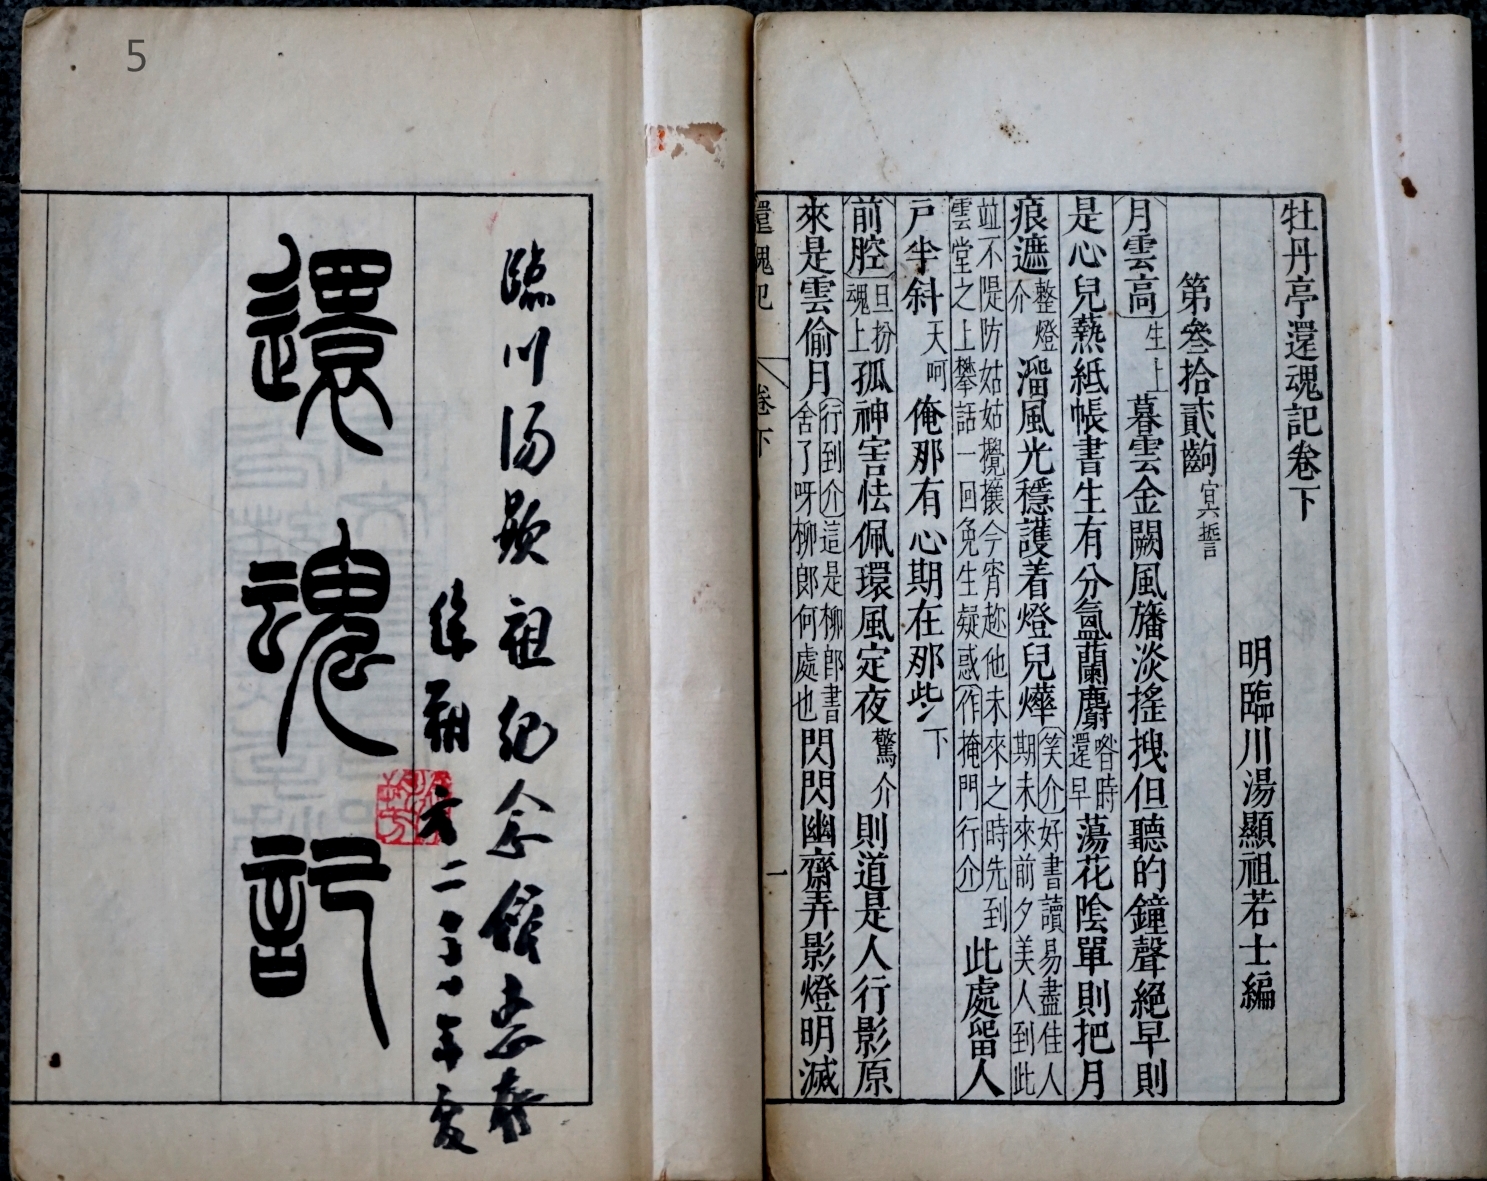 牡丹亭還魂記卷下
明臨川湯顯祖若士編
第叄拾貳齣 冥誓
月雲高 生上 暮雲金闕風旛淡搖拽但聽的鐘聲絕早則
是心兒熱紙帳書生有分氲蘭麝 喒時還早 蕩花陰單則把月
痕遮 整燈介 溜風光穩護着燈兒燁 笑介 好書讀易盡佳人期未來前夕美人到此
並不隄防姑姑攪攘今宵趂他未來之時先到雲堂之上攀話一回免生疑惑 作掩門行介 此處留人
戶半斜 天呵 俺那有心期在那些 下
前腔 旦扮魂上 孤神害怯佩環風定夜 驚介 則道是人行影原
來是雲偷月 行到介 這是柳郎書舍了呀柳郎何處也 閃閃幽齋弄影燈明滅
還魂記 卷下 一
臨川湯顯祖紀念館惠存
徐朔方 二〇〇〇年夏
還魂記
5